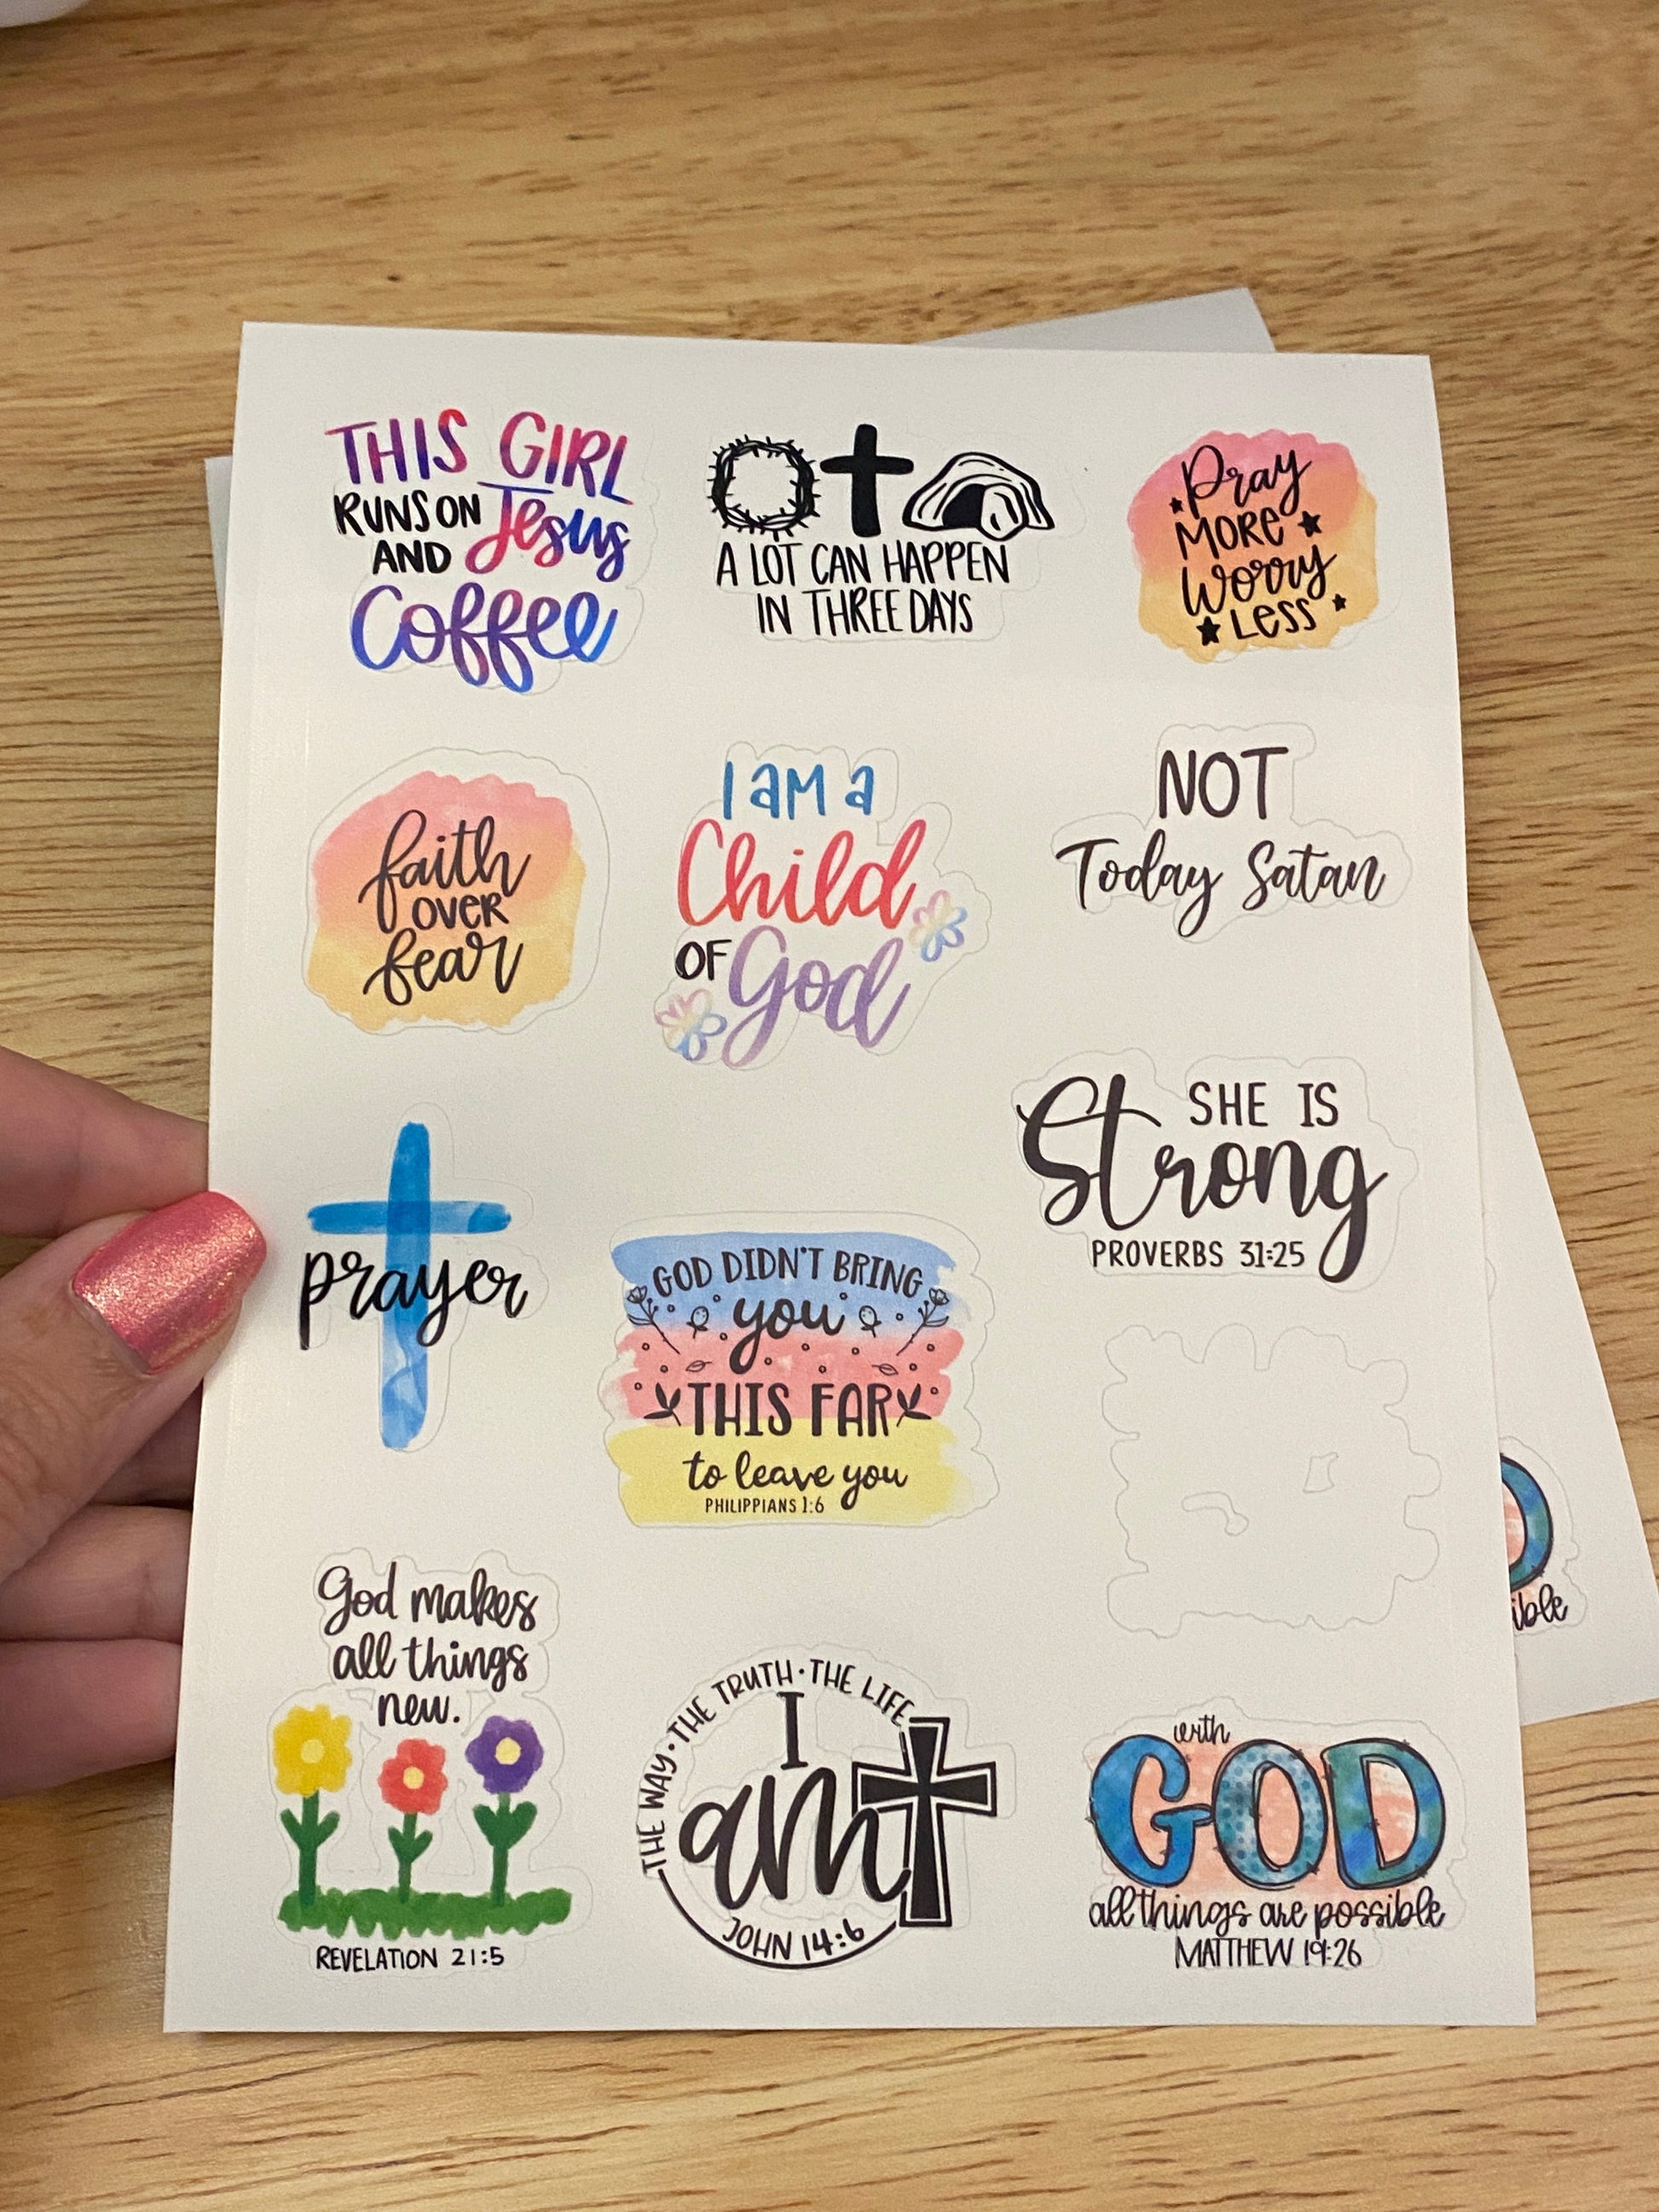 THIS GIRL
RUNS ON Jesus
AND
Coffee
A LOT CAN HAPPEN
IN THREE DAYS
Pray
MORE
Worry
Less
faith
OVER
fear
I am a
Child
OF God
NOT
Today Satan
prayer
GOD DIDN'T BRING
you
THIS FAR
to leave you
PHILIPPIANS 1:6
SHE IS
Strong
PROVERBS 31:25
God makes
all things
new.
REVELATION 21:5
THE WAY · THE TRUTH · THE LIFE
I
am
JOHN 14:6
with
GOD
all things are possible
MATTHEW 19:26
D
ible